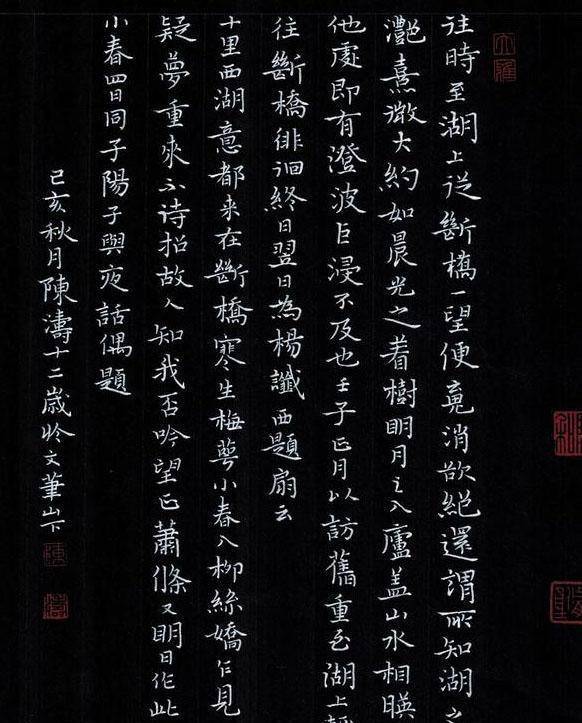 大雅
往時至湖上從斷橋一望便竟消欲絕還謂所知湖
灧熹微大約如晨光之着樹明月之入廬盖山水相暎
他處即有澄波巨浸不及也壬子正月以訪舊重至湖上
往斷橋徘徊終日翌日為楊讖西題扇云
十里西湖意都来在斷橋寒生梅萼小春入柳絲嬌乍見
疑夢重來不诗招故人知我否吟望正蕭條又明日作此
小春四日同子陽子與夜話偶題
己亥秋月陳濤十二歲於文筆山下
陳
濤